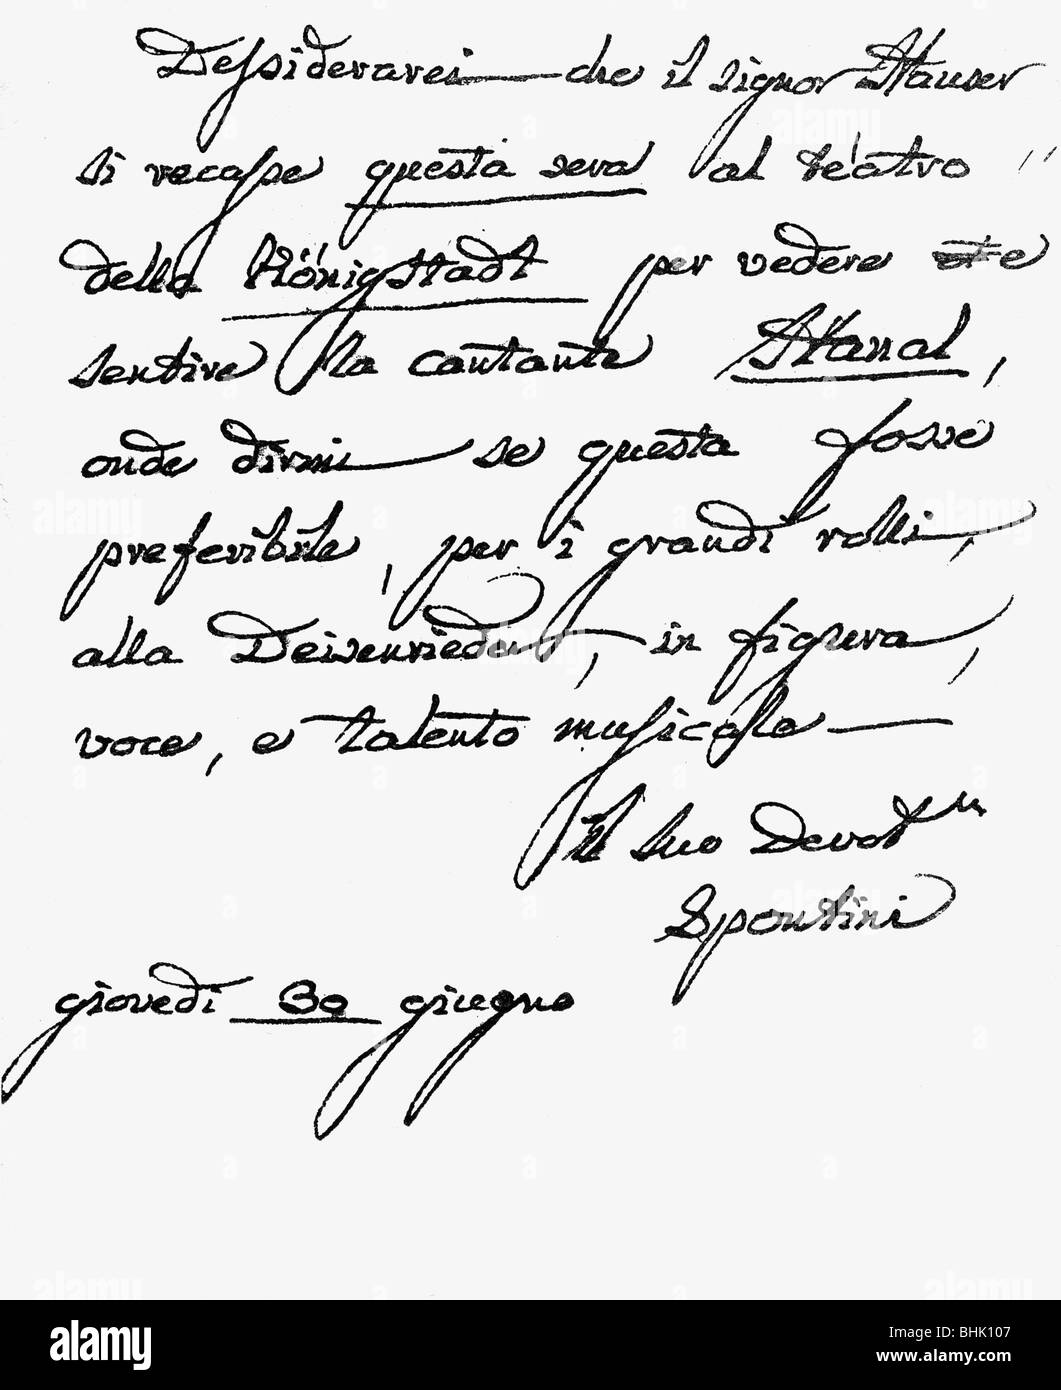 Dessiderarei che il signor Hauser
si recasse questa sera al teatro
della Königstadt per vedere e
sentire la cantante Hanal,
onde dirmi se questa fosse
preferibile, per i grandi rolli,
alla Deisenrieder, in figura,
voce, e talento musicale
Il suo Devot.m
Spontini
giovedì 30 giugno
alamy
Image ID: BHK107
www.alamy.com